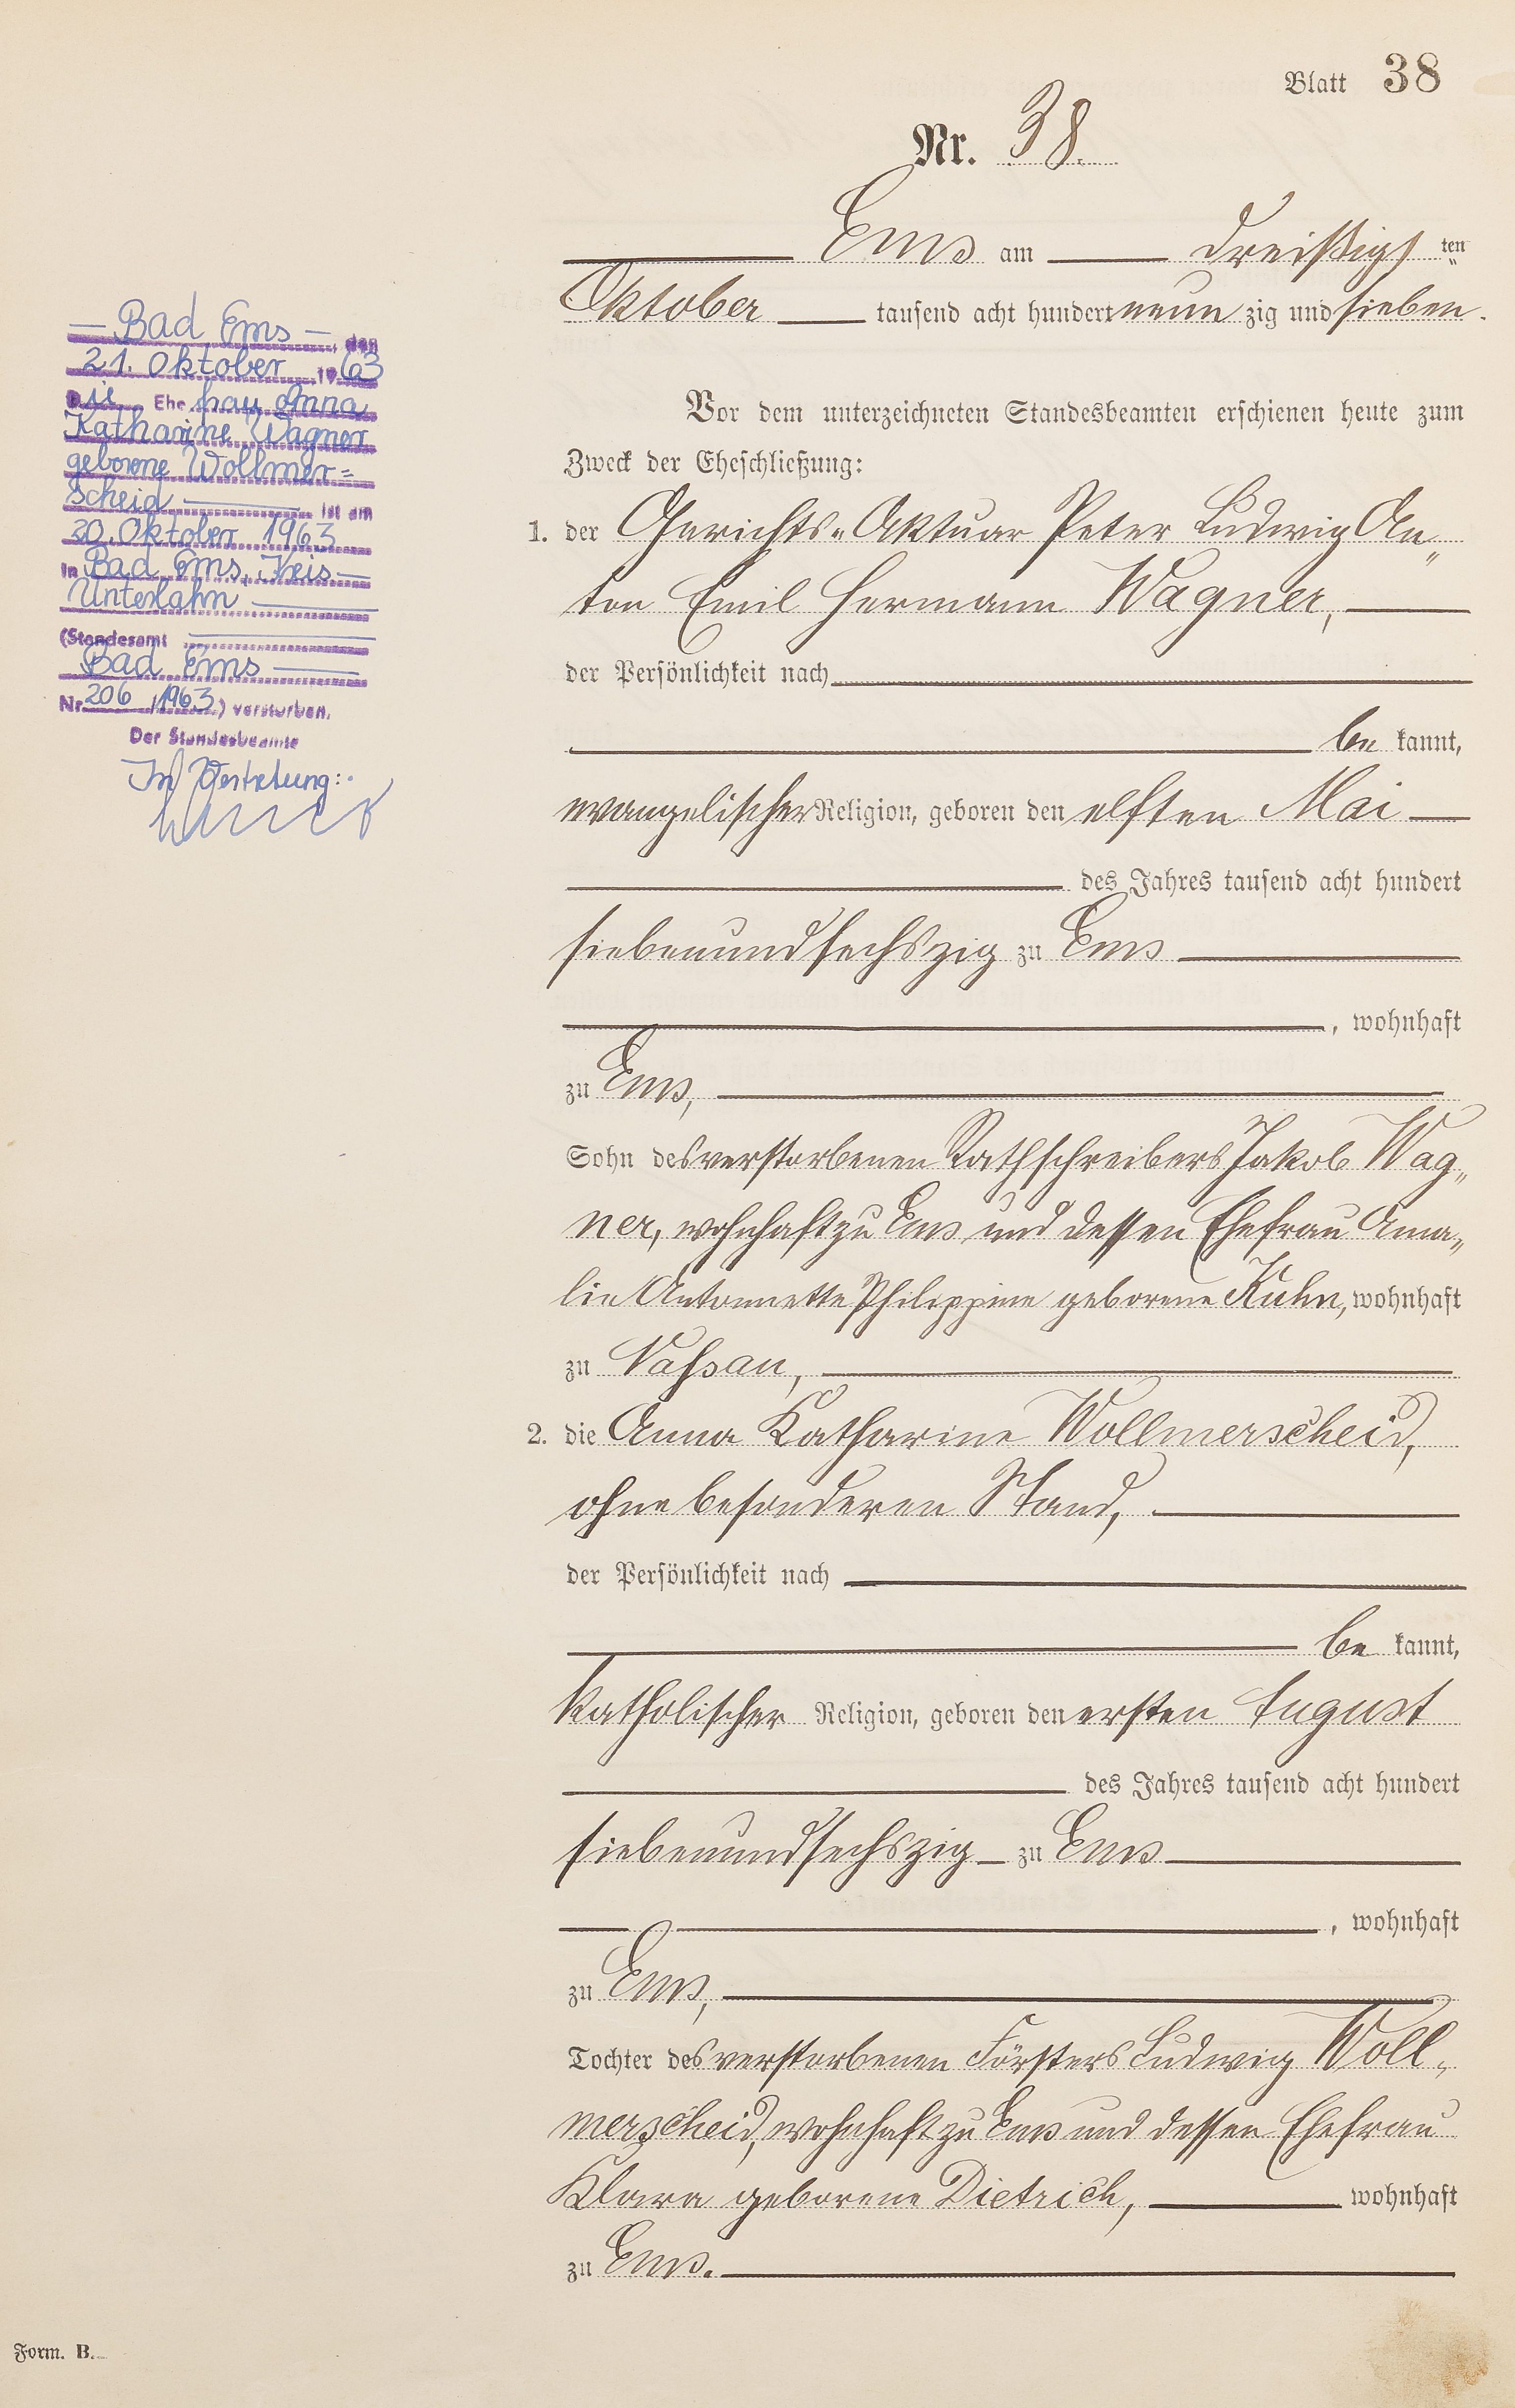 Blatt 38
Nr. 38.
Ems am dreißigsten
Oktober tausend acht hundert neunzig und sieben.
Vor dem unterzeichneten Standesbeamten erschienen heute zum
Zweck der Eheschließung:
1. der Gerichts-Aktuar Peter Ludwig An-
ton Emil Hermann Wagner,
der Persönlichkeit nach
bekannt,
evangelischer Religion, geboren den elften Mai
des Jahres tausend acht hundert
siebenundsechszig zu Ems
, wohnhaft
zu Ems,
Sohn des verstorbenen Rathschreibers Jakob Wag-
ner, wohnhaft zu Ems und dessen Ehefrau Ama-
lie Antonnette Philippine geborene Kuhn, wohnhaft
zu Nassau,
2. die Anna Katharine Wollmerscheid,
ohne besonderen Stand,
der Persönlichkeit nach
bekannt,
katholischer Religion, geboren den ersten August
des Jahres tausend acht hundert
siebenundsechszig zu Ems
, wohnhaft
zu Ems,
Tochter des verstorbenen Försters Ludwig Woll-
merscheid, wohnhaft zu Ems und dessen Ehefrau
Klara geborene Dietrich, wohnhaft
zu Ems.
Bad Ems, den
21. Oktober 1963
Die Ehefrau Anna
Katharine Wagner
geborene Wollmer=
scheid ist am
20. Oktober 1963
in Bad Ems, Kreis
Unterlahn
(Standesamt
Bad Ems
Nr. 206/1963) verstorben.
Der Standesbeamte
In Vertretung:
Form. B.